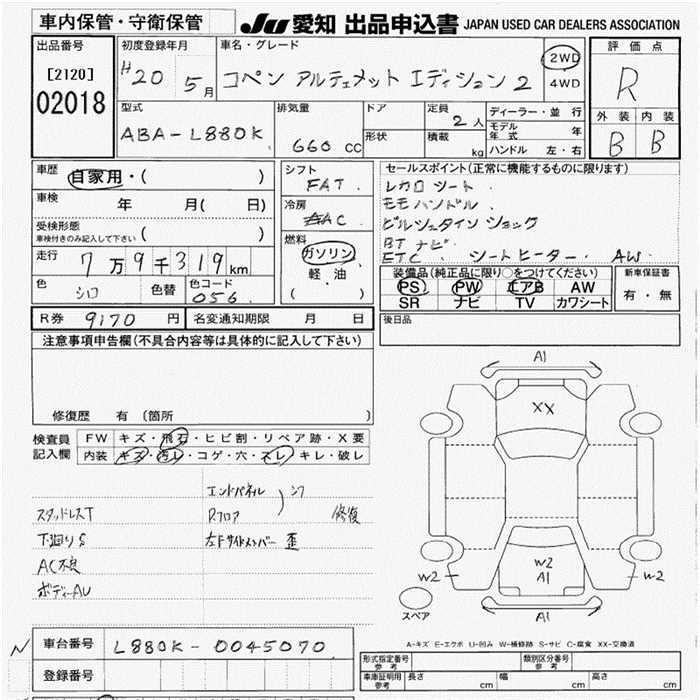 車内保管・守衛保管
JU 愛知 出品申込書 JAPAN USED CAR DEALERS ASSOCIATION
出品番号
[2120]
02018
初度登録年月
H20 5月
車名・グレード
コペン アルティメット エディション 2
2WD
4WD
評価点
R
外装 内装
B B
型式
ABA-L880K
排気量
660 CC
ドア
形状
定員
2人
積載
kg
ディーラー・並行
モデル年式 年
ハンドル 左・右
車歴
自家用・( )
車検 年 月( 日)
受検形態
車検付きのみ記入して下さい ( )
走行
7万9千319km
色
シロ
色替
色コード
056
シフト
FAT
冷房
AAC
燃料
ガソリン
軽油
( )
セールスポイント(正常に機能するものに限ります)
レカロ シート.
モモ ハンドル.
ビルシュタイン ショック
BT ナビ.
ETC. シートヒーター. AW.
装備品(純正品に限り○をつけてください)
PS PW エアB AW
SR ナビ TV カワシート
新車保証書
有・無
R券 9170 円
名変通知期限 月 日
後日品
注意事項申告欄(不具合内容等は具体的に記入して下さい)
修復歴 有 (箇所 )
検査員記入欄
FW キズ・飛石・ヒビ割・リペア跡・X要
内装 キズ・汚レ・コゲ・穴・スレ・キレ・破レ
エンドパネル
Rフロア
修復
左Fサイドメンバー 歪
スタッドレスT
下廻りS
AC不良
ボディーAU
A1
XX
W2
A1
W2
W2
A1
スペア
A-キズ E-エクボ U-凹み W-補修跡 S-サビ C-腐食 XX-交換済
車台番号 L880K-0045070
登録番号
形式指定番号
参考
類別区分番号
参考
車庫証明用
参考
長さ cm 幅 cm 高さ cm